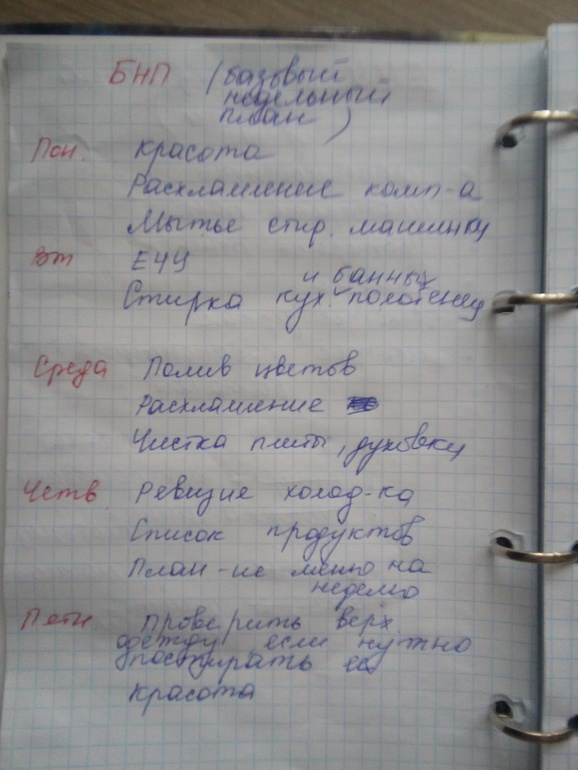 БНП (базовый
недельный
план)
Пон. Красота
Расхламление комп-а
Мытье стир. машинки
Вт ЕЧУ
и банных
Стирка кух. полотенец
Среда Полив цветов
Расхламление
Чистка плиты, духовки
Четв Ревизия холод-ка
Список продуктов
План-ие меню на
неделю
Пятн Проверить верх.
одежду, если нужно
постирать её
Красота